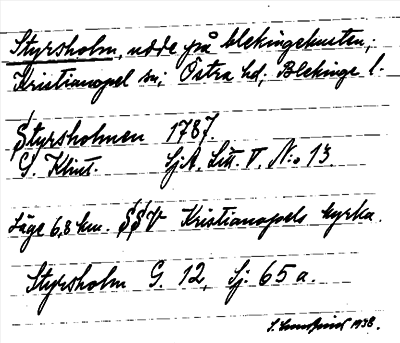 Styrsholm, udde på blekingekusten,
Kristianopel sn; Östra hd; Blekinge l.
Styrsholmen 1787.
G. Klint. SjA. Litt. V. N:o 13.
Läge 6,8 km. SSV Kristianopels kyrka.
Styrsholm G. 12, Sj. 65 a.
1938.